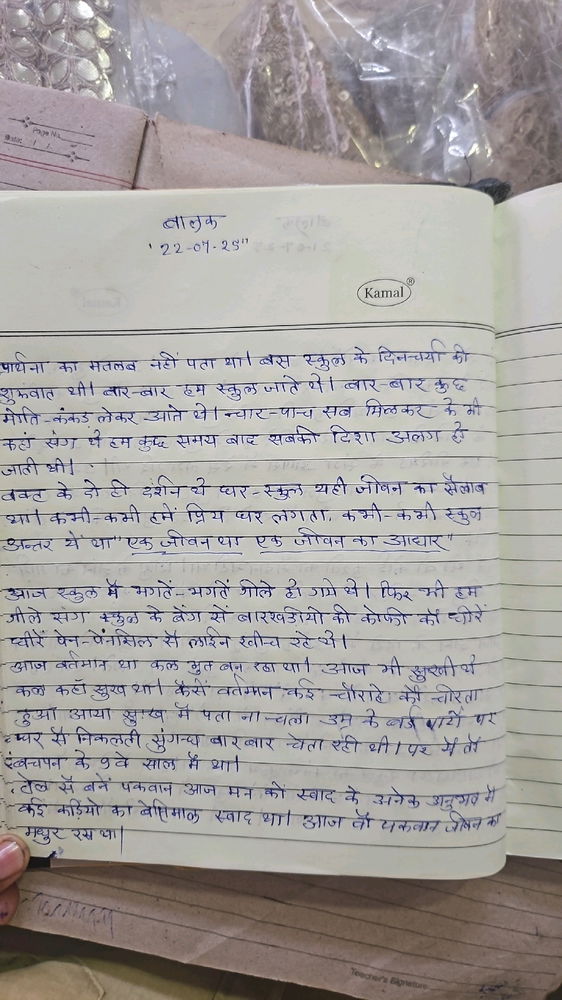 Page No.
Date: / /
बालक
'22-07-25"
Kamal®
प्रार्थना का मतलब नहीं पता था। बस स्कुल के दिनचर्या की
शुरुवात थी। बार-बार हम स्कुल जाते थे। बार-बार कुछ
मोति-कंकड लेकर आते थे। चार-पाच सब मिलकर के भी
कहां संग थे हम कुछ समय बाद सबकी दिशा अलग हो
जाती थी।
वक्ट के दो ही दर्शन थे घर-स्कुल यही जीवन का सैलाब
था। कभी-कभी हमें प्रिय घर लगता, कभी-कभी स्कुल
अन्तर ये था "एक जीवन था एक जीवन का आधार"
आज स्कुल में भगतें-भगतें गीले हो गये थे। फिर भी हम
गीले संग स्कुल के बेंग सें बारखडीयो की कोफी कों धीरें
धीरें पेन-पेंनसिल सें लाईन खीच रहे थे।
आज वर्तमान था कल भुत बन रहा था। आज भी सुखी थे
कल कहाँ सुख था। कैसें वर्तमान कई चौराहे कों चीरता
हुआँ आया सुख में पता ना चला उम्र के कई पर
घर सें निकलती सुंगन्ध बार बार चेता रही थी। पर में तों
बचपन के 9 वे साल में था।
तेल सें बनें पकवान आज मन कों स्वाद के अनेक अनुभव में
कई कडियो का बेमिसाल स्वाद था। आज तों पकवान जीवन का
मधुर रस था।
Teacher's Signature